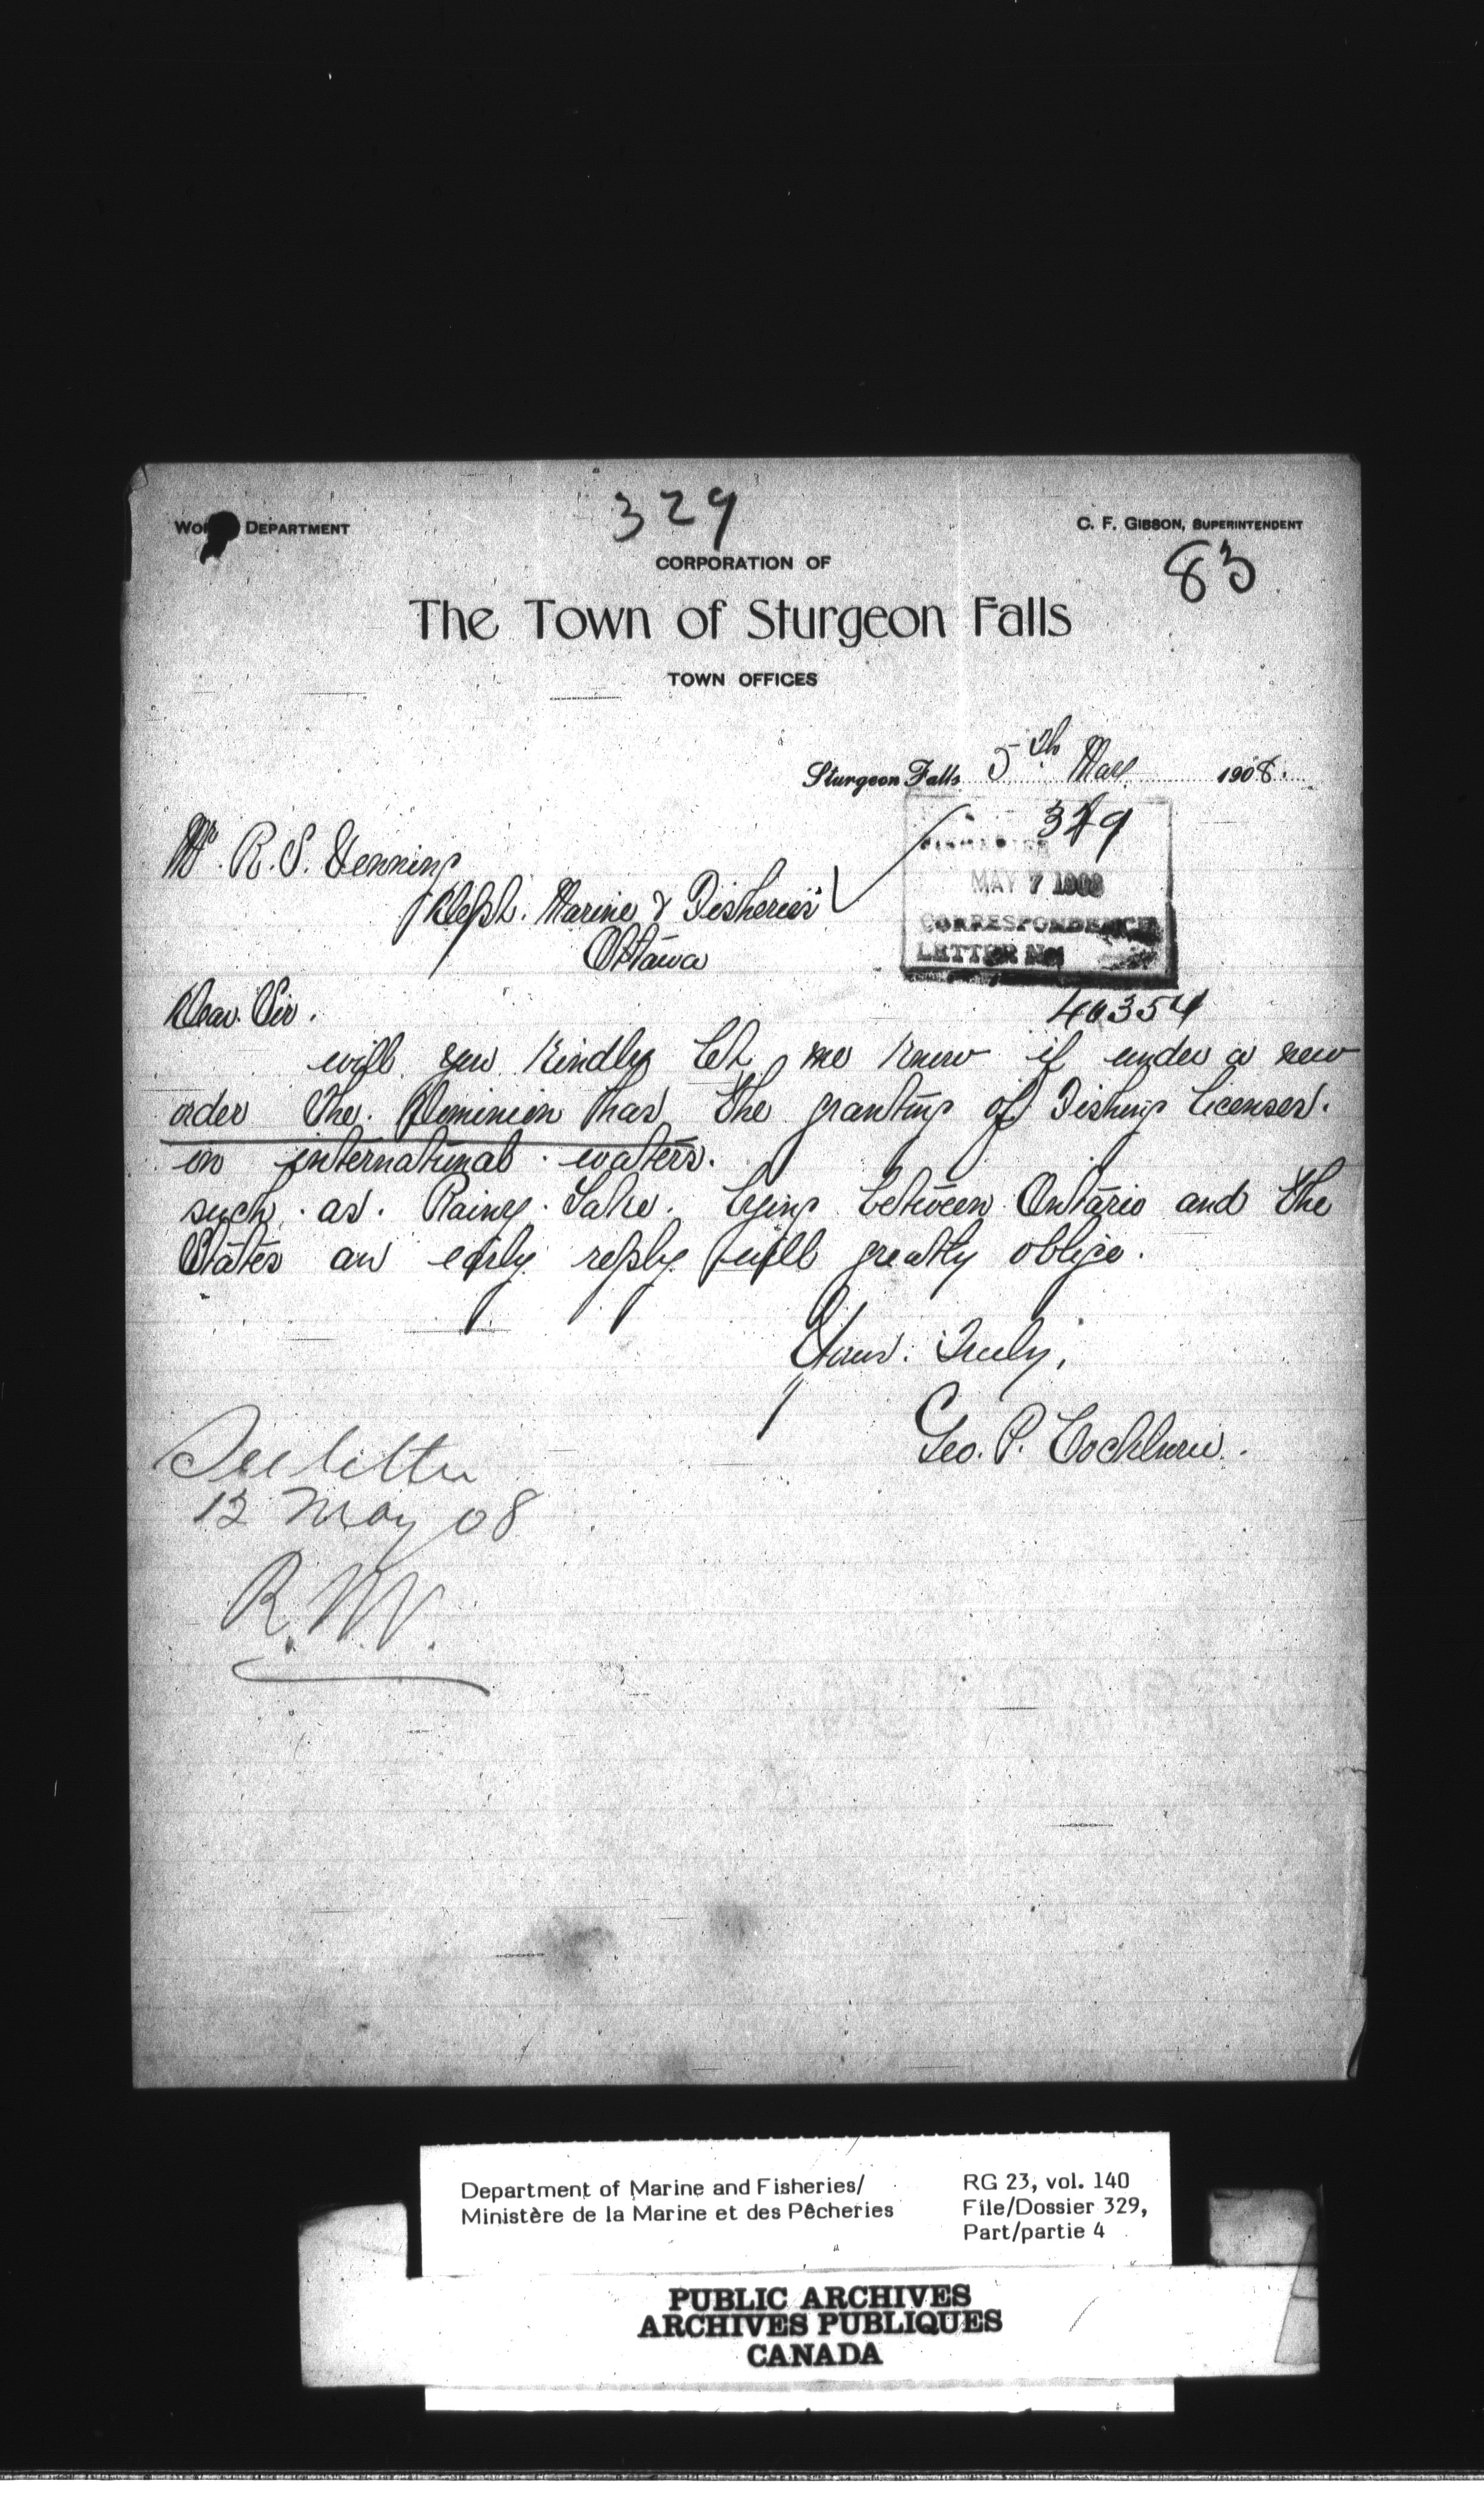 329
WORKS DEPARTMENT
C. F. GIBSON, SUPERINTENDENT
83
CORPORATION OF
The Town of Sturgeon Falls
TOWN OFFICES
Sturgeon Falls 5th May 1908.
Mr. R. S. Venning
Dept. Marine & Fisheries
Ottawa
329
MAY 7 1908
CORRESPONDENCE
LETTER No.
40354
Dear Sir.
will you kindly let me know if under a new
order The Dominion has the granting of Fishing licenses.
in international waters.
such as Rainy Lake. lying between Ontario and the
States an early reply will greatly oblige.
Yours Truly,
Geo. P. Cockburn.
See letter
12 May 08
R.N.V.
Department of Marine and Fisheries/
Ministère de la Marine et des Pêcheries
RG 23, vol. 140
File/Dossier 329,
Part/partie 4
PUBLIC ARCHIVES
ARCHIVES PUBLIQUES
CANADA